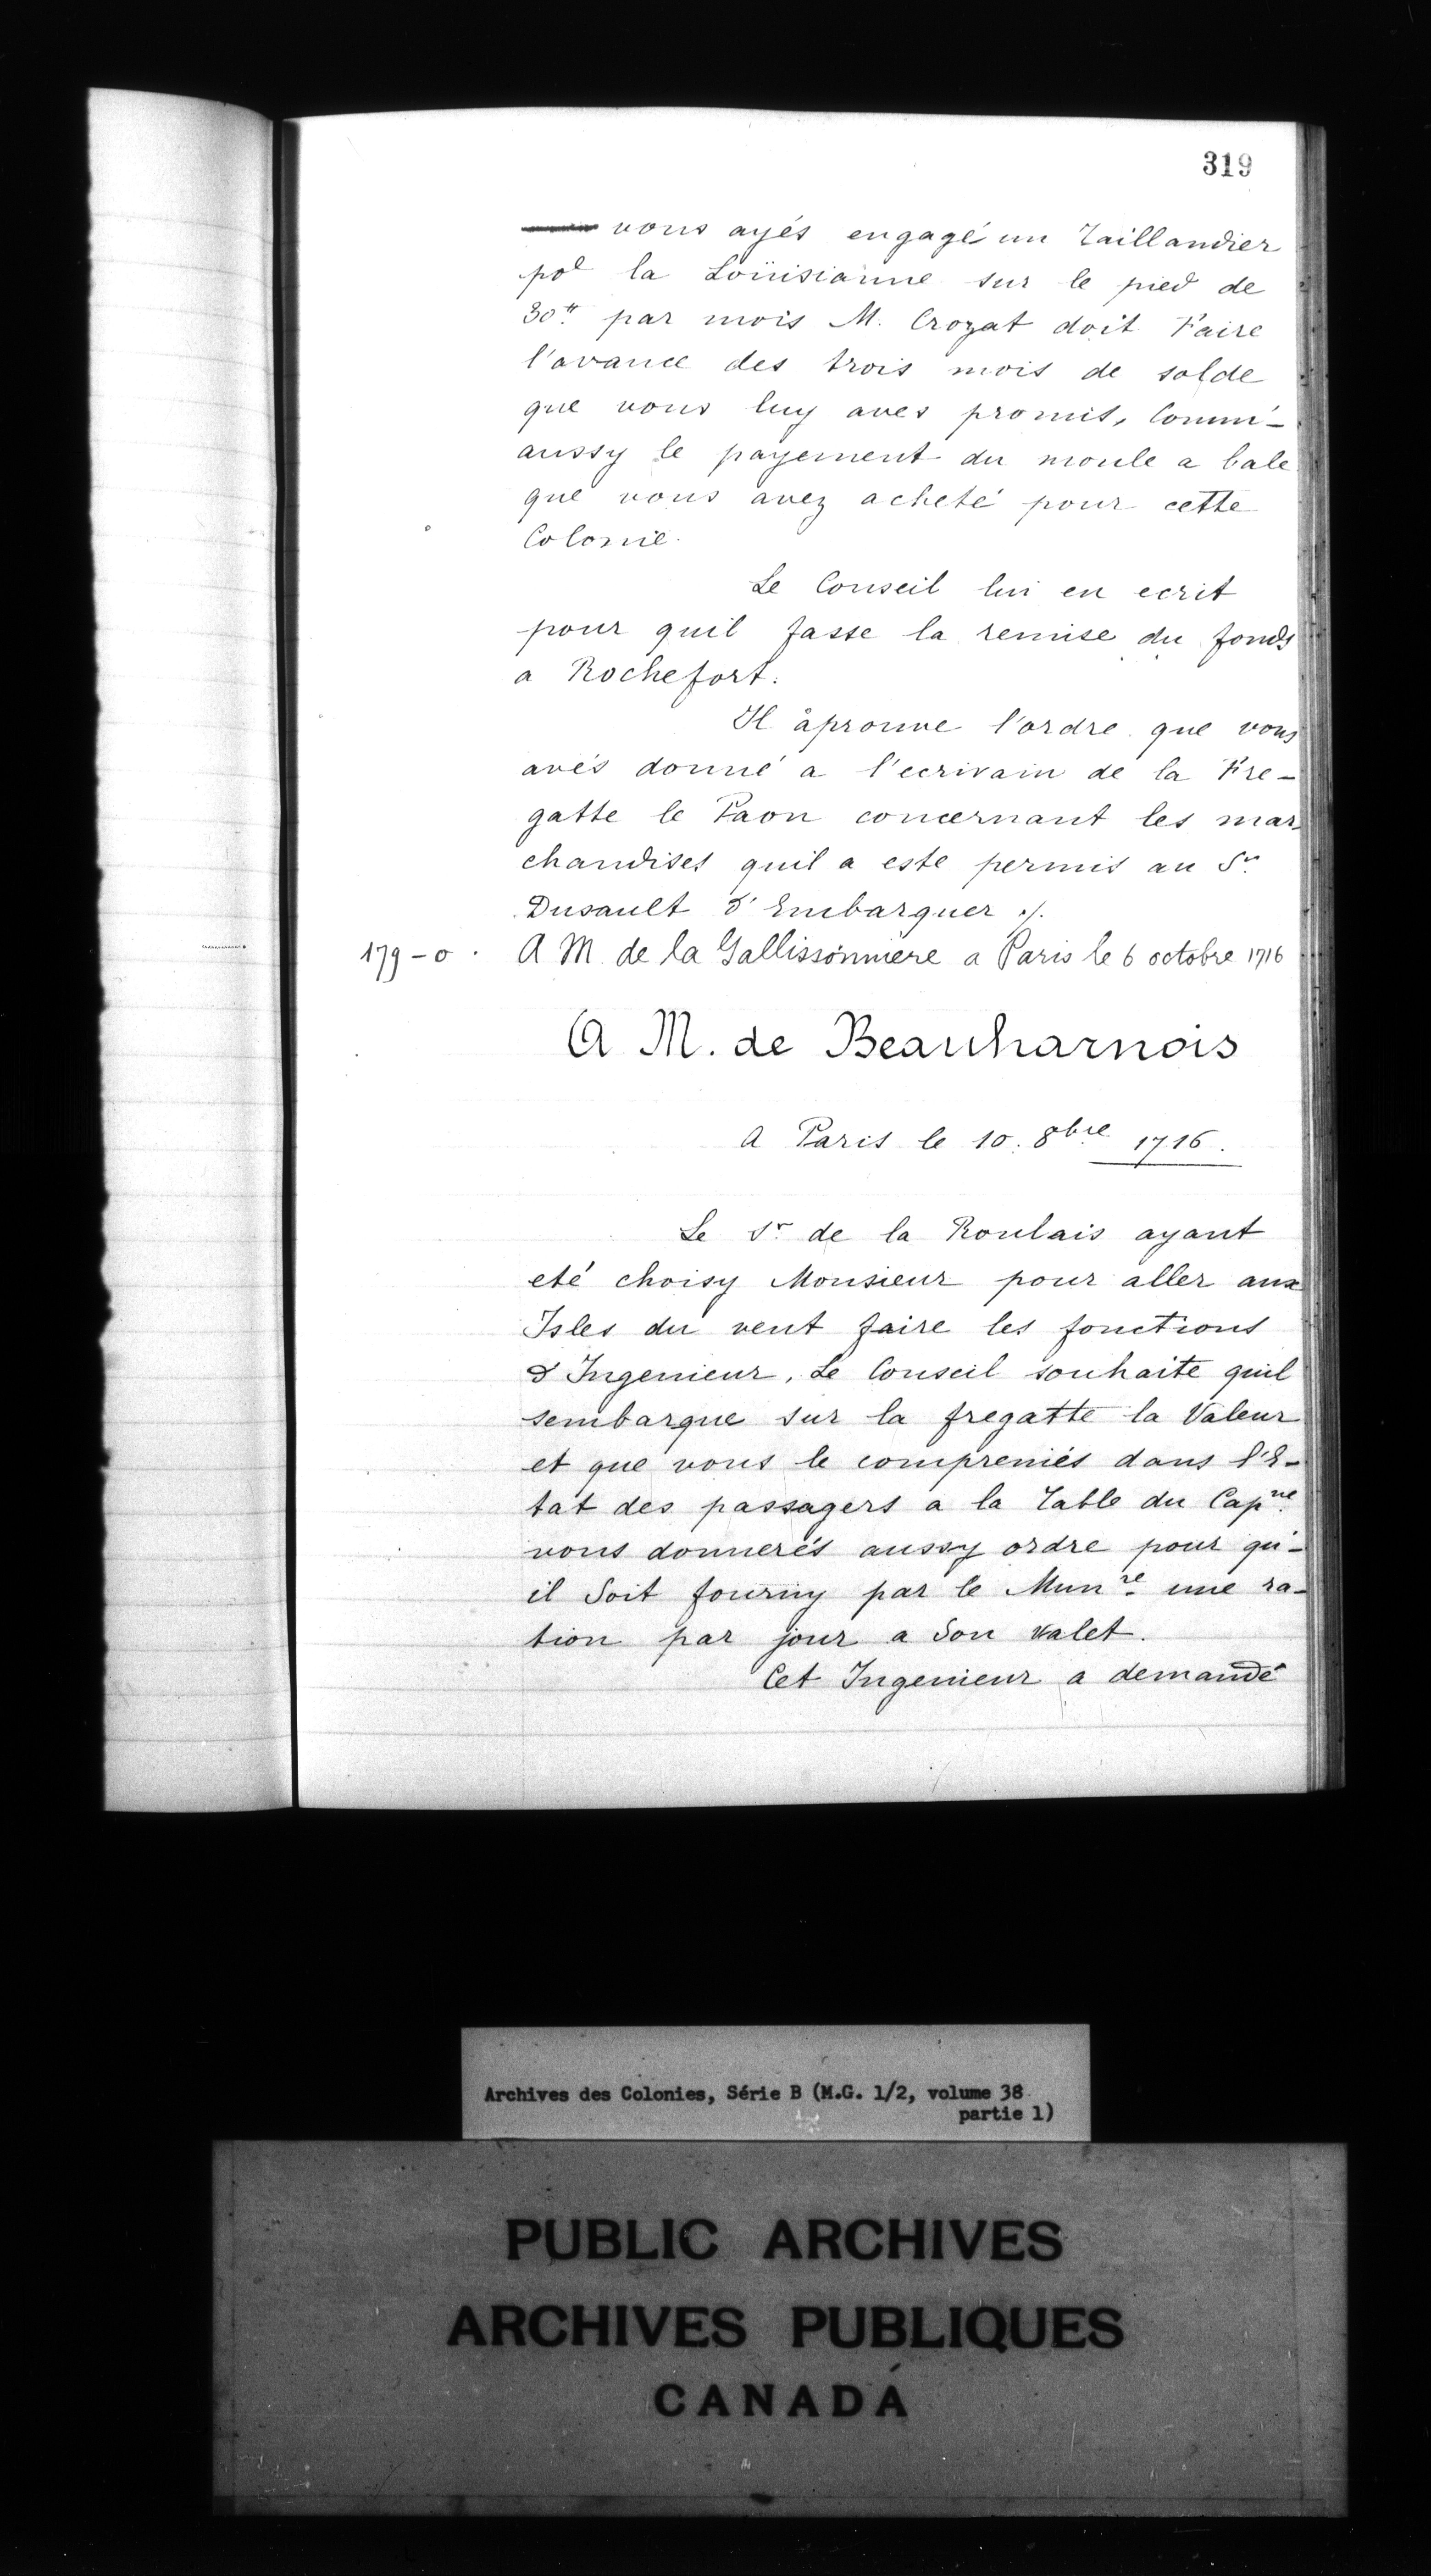 319
vous ayés engagé un Taillandier
po<sup>r</sup> la Loüisianne sur le pied de
30<sup>tt</sup> par mois M. Crozat doit Faire
l'avance des trois mois de solde
que vous luy aves promis, Comm'-
aussy le payement du moule a bale
que vous avez acheté pour cette
Colonie.
Le Conseil lui en ecrit
pour quil fasse la remise du fonds
a Rochefort.
Il aprouve l'ordre que vous
avés donné a l'ecrivain de la Fre-
gatte le Paon concernant les mar-
chandises quil a este permis au S<sup>r</sup>
Dusault d'Embarquer ./.
179-0. A M. de la Gallissonniere a Paris le 6 octobre 1716
A M. de Beauharnois
A Paris le 10. 8<sup>bre</sup> 1716.
Le S<sup>r</sup> de la Roulais ayant
eté choisy Monsieur pour aller aux
Isles du vent faire les fonctions
d'Ingenieur, Le Conseil souhaite quil
sembarque sur la fregatte la Valeur
et que vous le compreniés dans l'E-
tat des passagers a la Table du Cap<sup>ne</sup>
vous donnerés aussy ordre pour qu'-
il Soit fourny par le Mun<sup>re</sup> une ra-
tion par jour a Son valet.
Cet Ingenieur a demandé
Archives des Colonies, Série B (M.G. 1/2, volume 38
partie 1)
PUBLIC ARCHIVES
ARCHIVES PUBLIQUES
CANADA